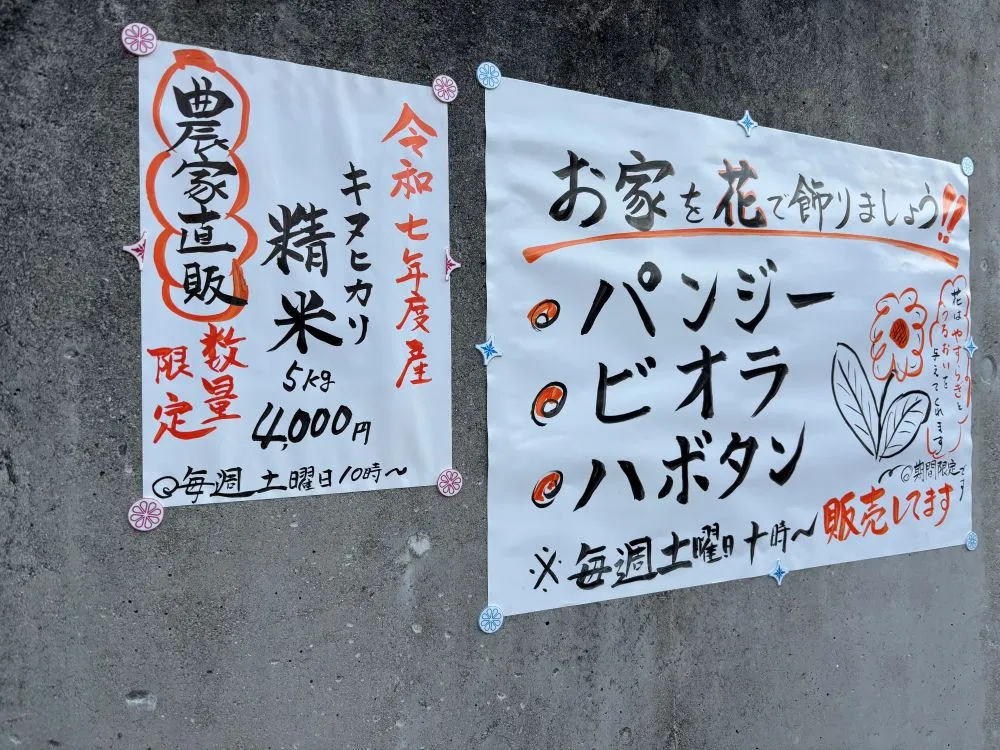 令和七年度産
キヌヒカリ
精米
5kg
4,000円
農家直販
数量
限定
◎毎週土曜日10時～
お家を花で飾りましょう!!
パンジー
ビオラ
ハボタン
花はやすらぎと
うるおいを
与えてくれます
◎期間限定で
販売してます
※毎週土曜日十時～